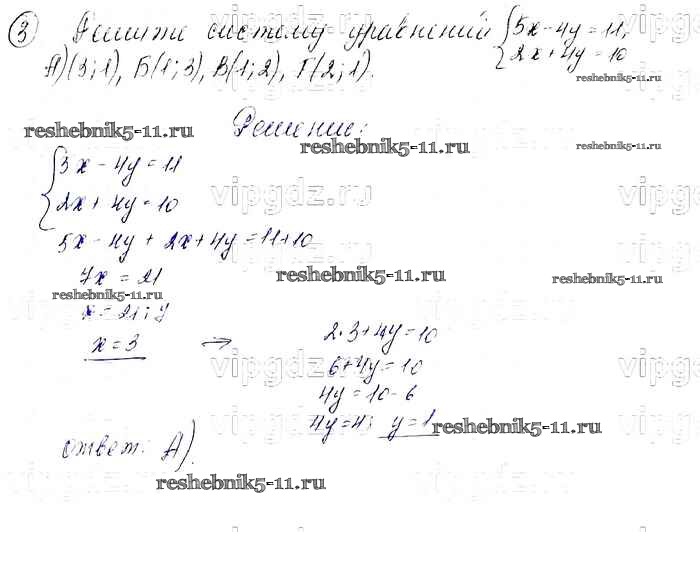 ③ Решите систему уравнений { 5x - 4y = 11,
2x + 4y = 10
А)(3;1), Б(1;3), В(1;2), Г(2;1).
Решение:
{ 5x - 4y = 11
2x + 4y = 10
5x - 4y + 2x + 4y = 11+10
7x = 21
x = 21 : 7
x = 3 ⇒
2·3+4y=10
6+4y=10
4y=10-6
4y=4; y=1
ответ: А).
reshebnik5-11.ru
reshebnik5-11.ru
reshebnik5-11.ru
reshebnik5-11.ru
reshebnik5-11.ru
reshebnik5-11.ru
reshebnik5-11.ru
reshebnik5-11.ru
vipgdz.ru
vipgdz.ru
vipgdz.ru
vipgdz.ru